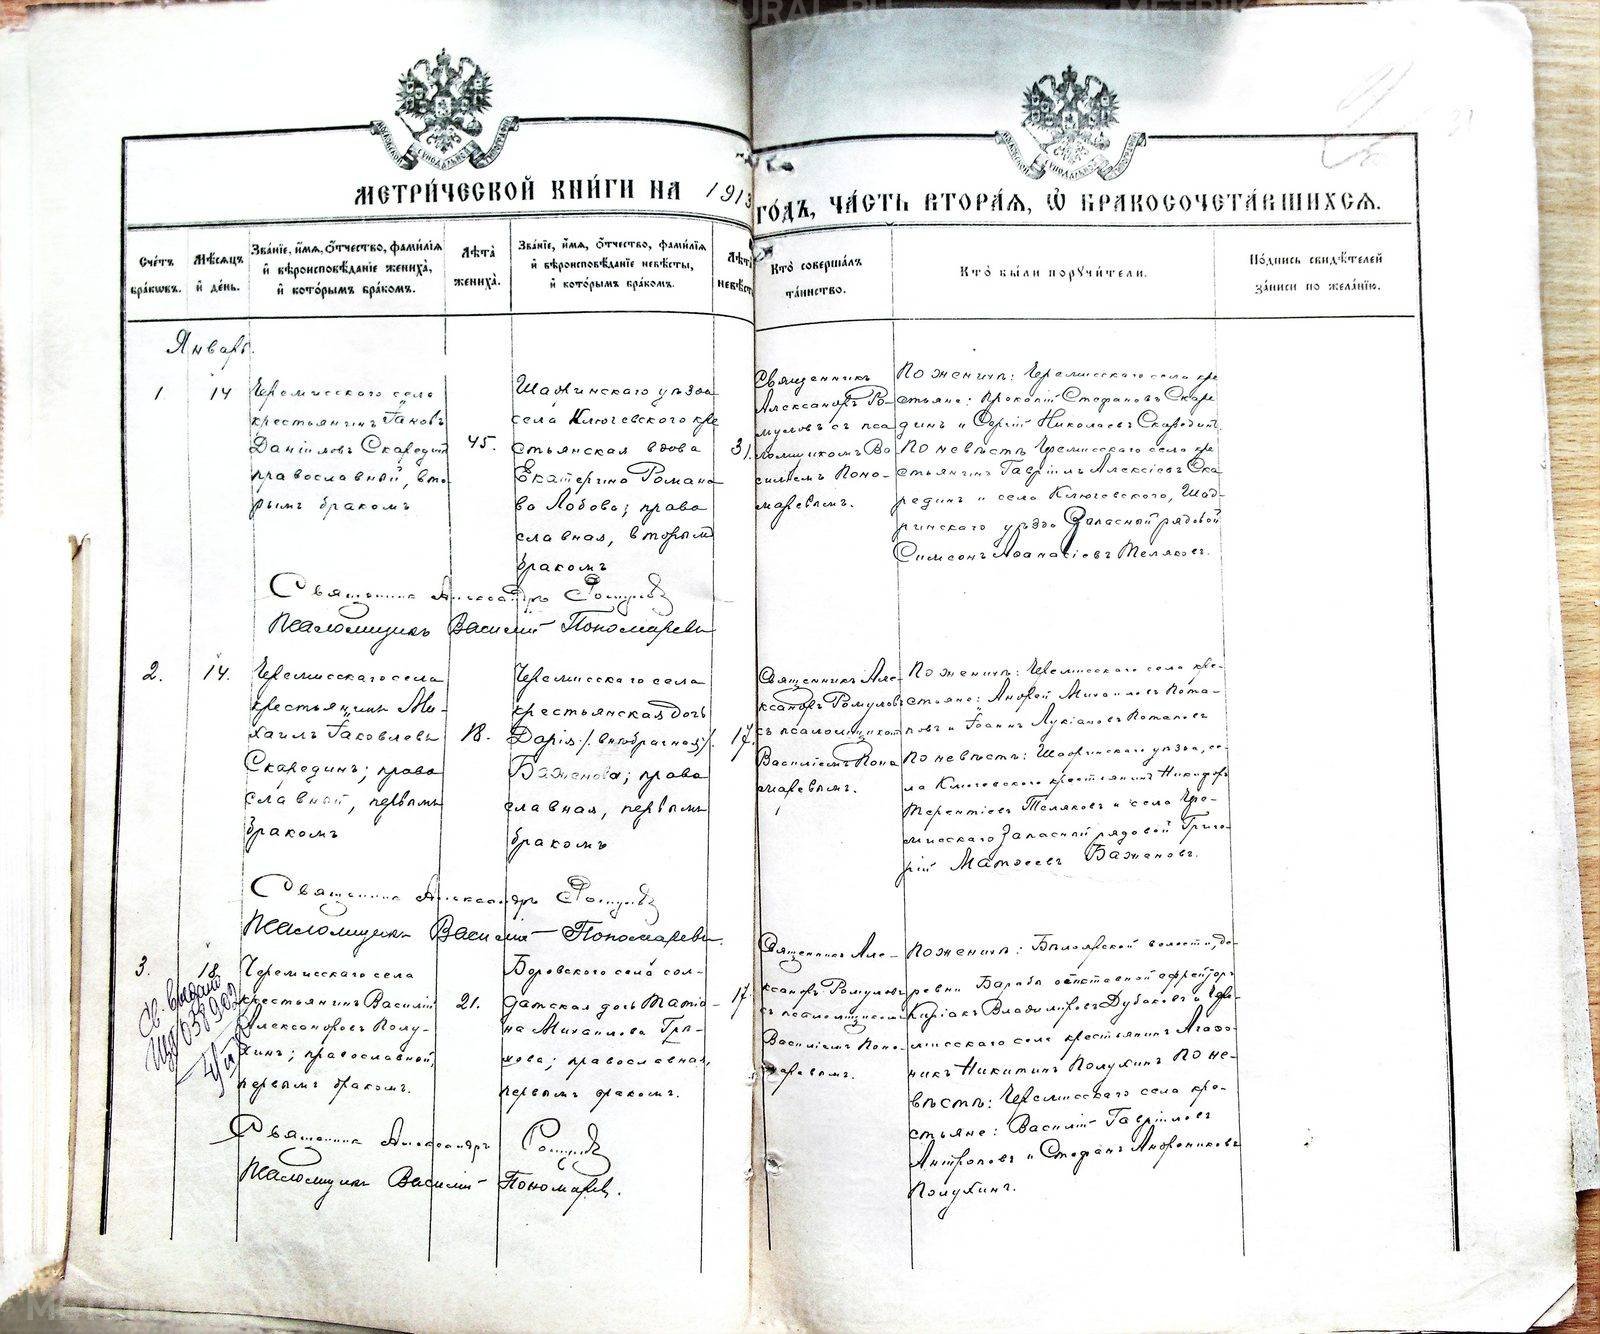 МЕТРИЧЕСКОЙ КНИГИ НА 1913
ГОДЪ, ЧАСТЬ ВТОРАЯ, Ѡ БРАКОСОЧЕТАВШИХСЯ.
Счетъ браковъ.
Мѣсяцъ и день.
Званіе, имя, отчество, фамилія
и вѣроисповѣданіе жениха,
и которымъ бракомъ.
Лѣта жениха.
Званіе, имя, отчество, фамилія
и вѣроисповѣданіе невѣсты,
и которымъ бракомъ.
Лѣта невѣсты
Кто совершалъ
таинство.
Кто были поручители.
Подпись свидѣтелей
записи по желанію.
Январь.
1
14
Черемисского села
крестьянинъ Іаковъ
Даніиловъ Скарединъ
православный, вто-
рымъ бракомъ
45.
Шадринскаго уѣзда
села Ключевского кре
стьянская вдова
Екатерина Романо
ва Лобова; право
славная, вторымъ
бракомъ
31.
Священникъ
Александръ Ро-
муловъ съ пса
ломщикомъ Ва
силіемъ Поно-
маревымъ.
По женихѣ: Черемисскаго села кре
стьяне: Прокопій Стефановъ Скаре
динъ и Сергій Николаевъ Скарединъ.
По невѣстѣ Черемисскаго села кре
стьянинъ Гавріилъ Алексіевъ Ска
рединъ и села Ключевского, Шад-
ринскаго уѣзда Запасный рядовой
Симеонъ Аѳанасіевъ Теляковъ.
Священникъ Александръ Ромуловъ
Псаломщикъ Василій Пономаревъ
2.
14.
Черемисскаго села
крестьянинъ Ми-
хаилъ Іаковлевъ
Скарединъ; право
славный, первымъ
бракомъ
18.
Черемисскаго села
крестьянская дочь
Дарія /: внѣбрачная :/
Баженова; право
славная, первымъ
бракомъ
17.
Священникъ Але-
ксандръ Ромуловъ
съ псаломщикомъ
Василіемъ Поно
маревымъ.
По женихѣ: Черемисскаго села кре-
стьяне: Андрей Михаиловъ Пота-
повъ и Іоаннъ Лукіановъ Потаповъ
По невѣстѣ: Шадринскаго уѣзда, се-
ла Ключевского крестьянинъ Никифоръ
Терентіевъ Теляковъ и села Чере-
мисскаго Запасный рядовой Григо-
рій Матѳеевъ Баженовъ.
Священникъ Александръ Ромуловъ
Псаломщикъ Василій Пономаревъ.
3.
18.
Черемисскаго села
крестьянинъ Василій
Александровъ Полу-
хинъ; православный,
первымъ бракомъ.
21.
Боровского села сол-
датская дочь Татіа-
на Михаилова Гра-
хова; православная,
первымъ бракомъ.
17.
Священникъ Але-
ксандръ Ромуловъ
съ псаломщикомъ
Василіемъ Поно-
маревымъ.
По женихѣ: Бѣлоярской волости, де-
ревни Бараба отставной ефрейторъ
Киріакъ Владиміровъ Дубаковъ и Чере-
мисскаго села крестьянинъ Агафо-
никъ Никитинъ Полухинъ По не-
вѣстѣ: Черемисскаго села кре-
стьяне: Василій Гавріиловъ
Антроповъ и Стефанъ Андрониковъ
Полухинъ.
Священникъ Александръ Ромуловъ
Псаломщикъ Василій Пономаревъ.